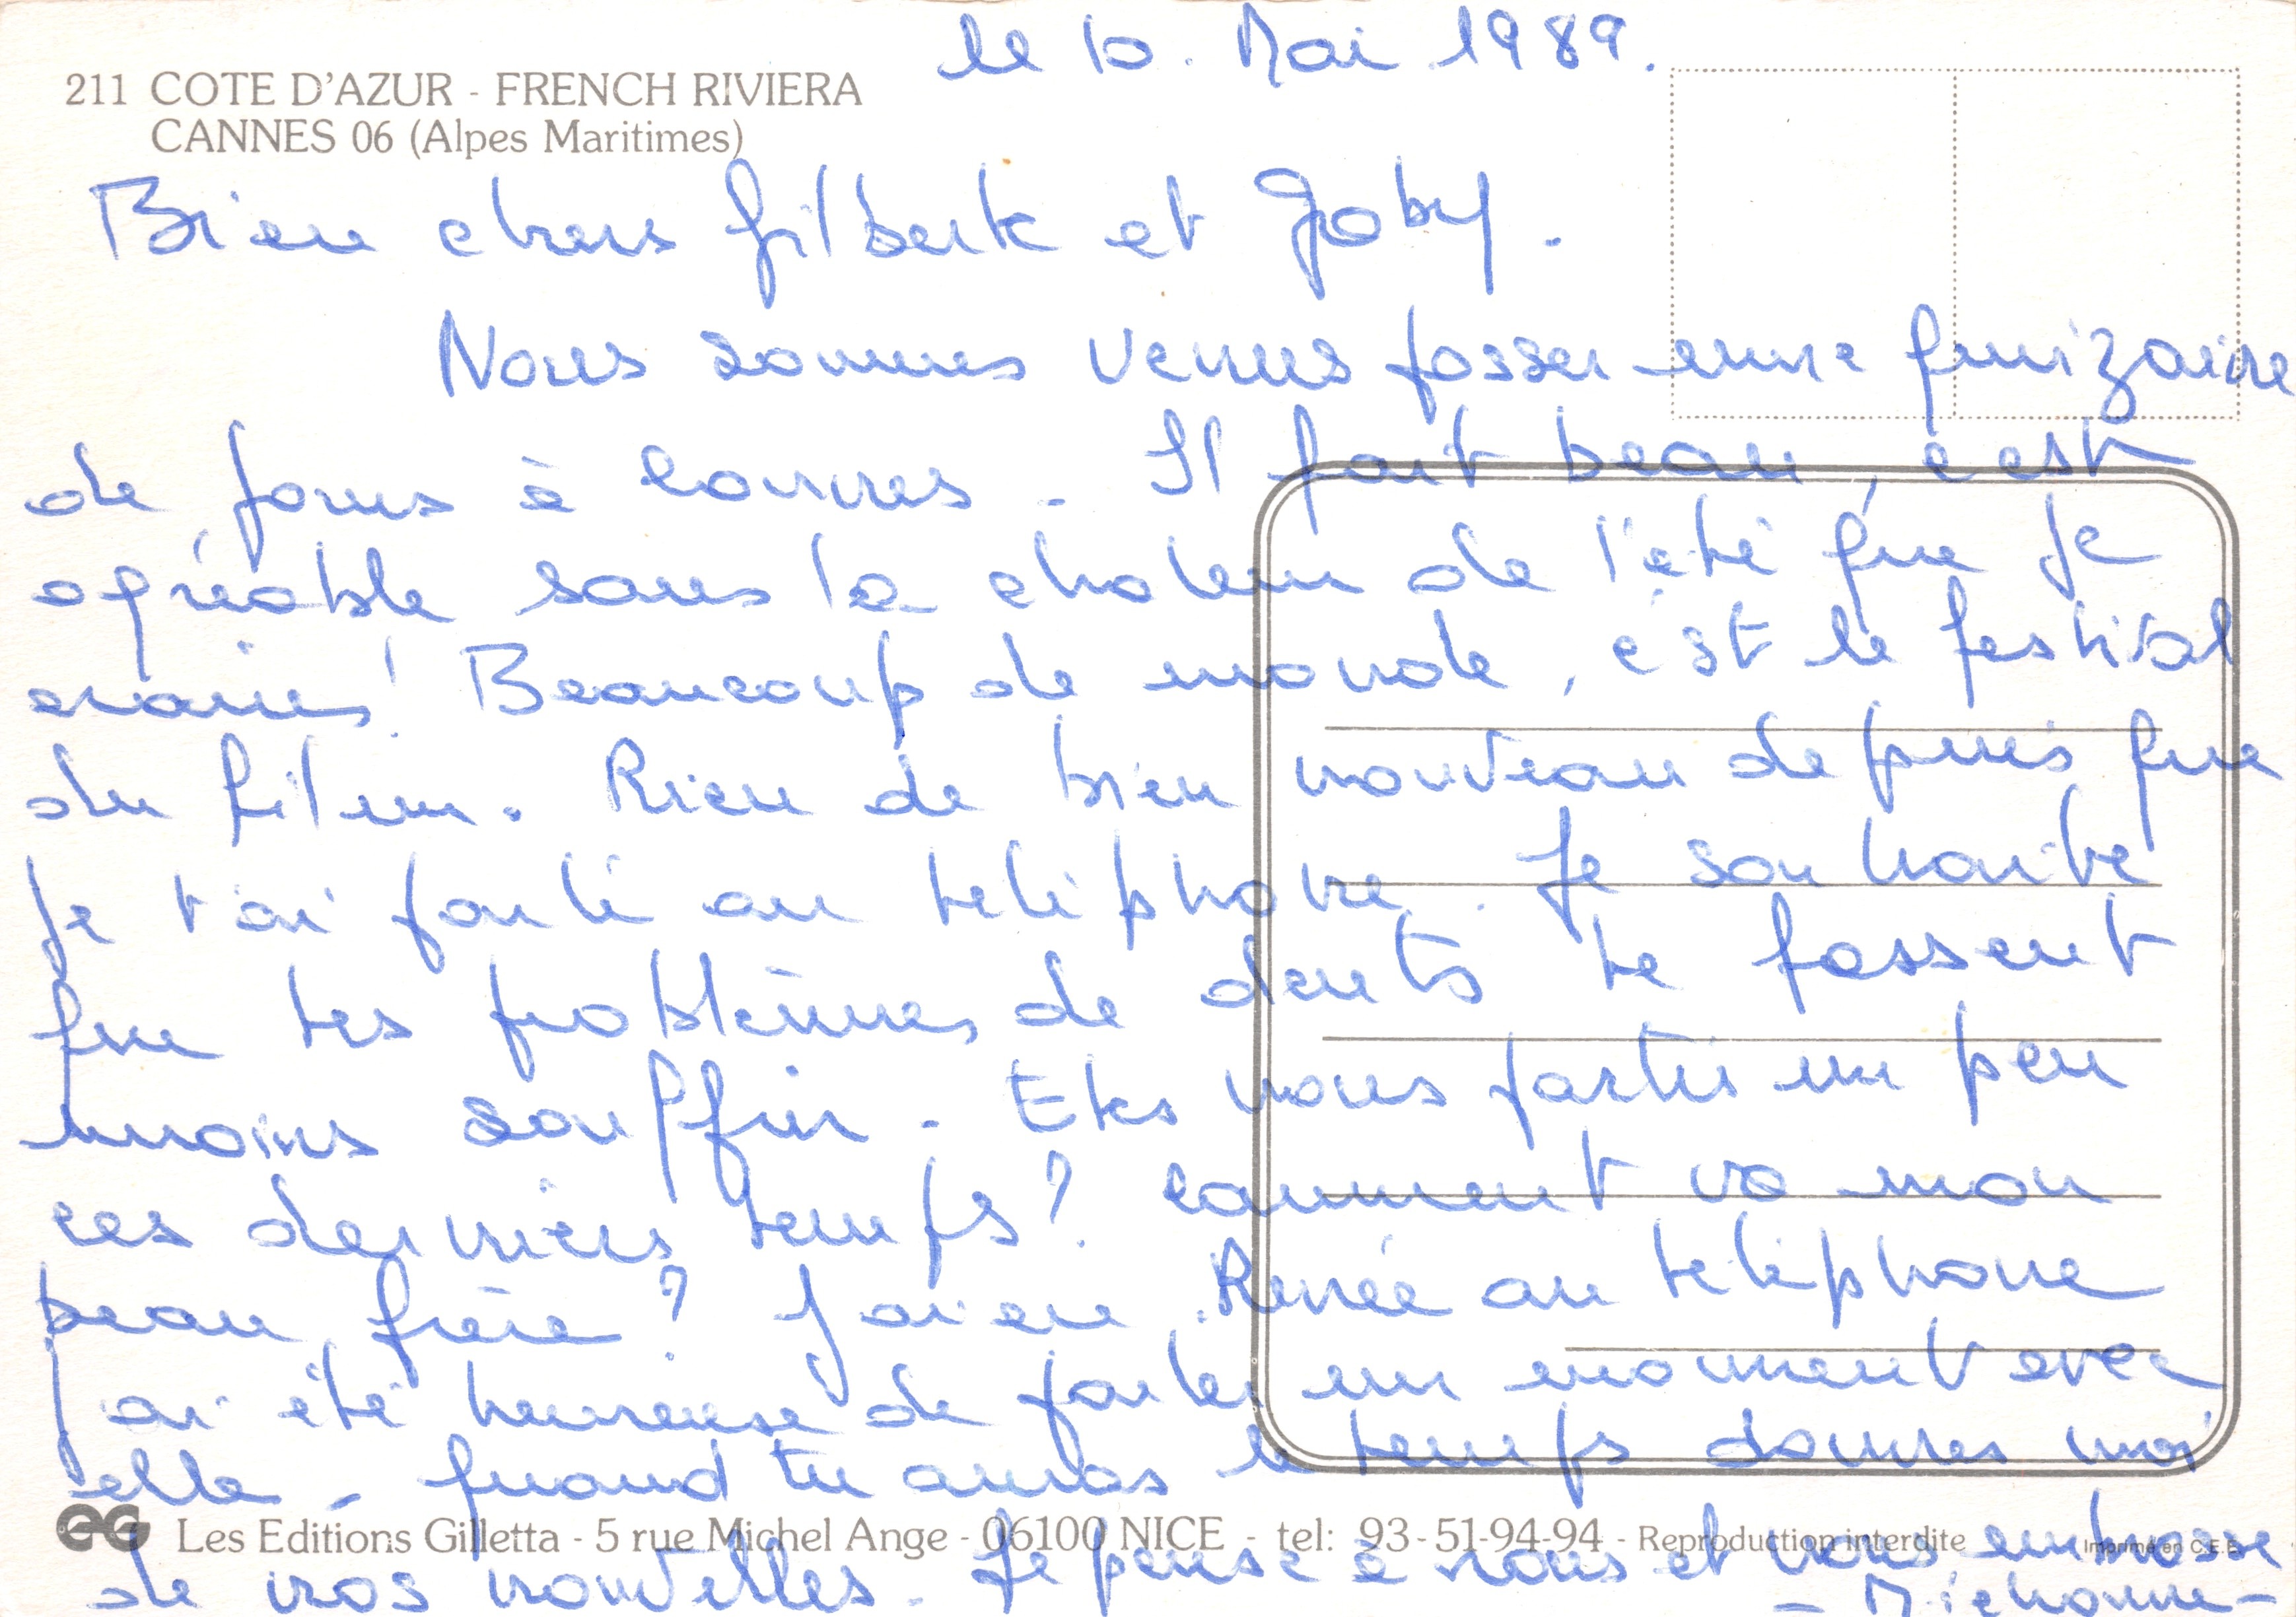 le 10. Mai 1989.
211 COTE D'AZUR - FRENCH RIVIERA
CANNES 06 (Alpes Maritimes)
Bien chers Gilberte et Gaby.
Nous sommes venus passer une quizaine
de jours à Cannes. Il fait beau, c'est
agréable sans la chaleur de l'été que je
crains! Beaucoup de monde, c'est le festival
du film. Rien de bien nouveau depuis que
je t'ai parlé au téléphone. Je souhaite
que tes problèmes de dents te fassent
moins souffrir. Etes vous partis un peu
ces derniers temps? Comment va mon
beau frère? J'ai eu Renée au téléphone
j'ai été heureuse de parler un moment avec
elle - quand tu auras le temps donnes moi
eG Les Editions Gilletta - 5 rue Michel Ange - 06100 NICE - tel: 93-51-94-94 - Reproduction interdite Imprimé en C.E.E.
de vos nouvelles. Je pense à vous et vous embrasse